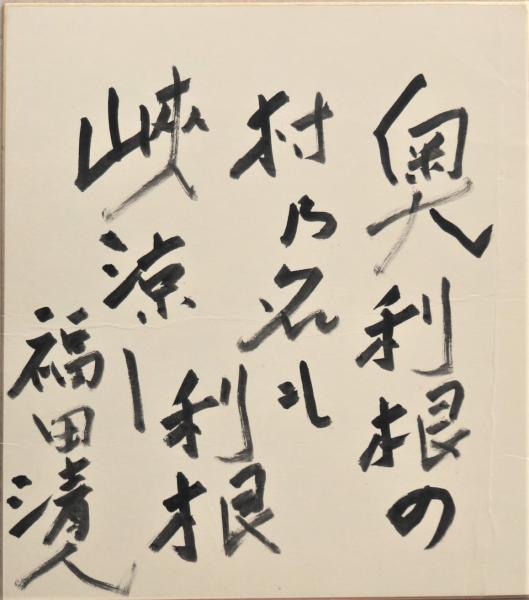 奥利根の
村乃名も
利根
峡涼し
福田清人